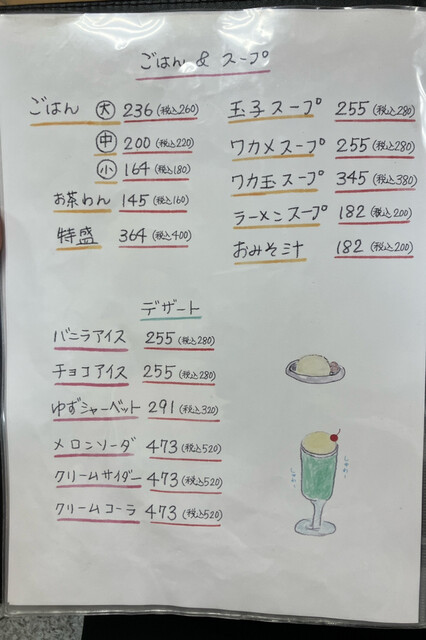 ごはん & スープ
ごはん 大 236 (税込260)
中 200 (税込220)
小 164 (税込180)
お茶わん 145 (税込160)
特盛 364 (税込400)
玉子スープ 255 (税込280)
ワカメスープ 255 (税込280)
ワカ玉スープ 345 (税込380)
ラーメンスープ 182 (税込200)
おみそ汁 182 (税込200)
デザート
バニラアイス 255 (税込280)
チョコアイス 255 (税込280)
ゆずシャーベット 291 (税込320)
メロンソーダ 473 (税込520)
クリームサイダー 473 (税込520)
クリームコーラ 473 (税込520)
しゅわ〜
しゅわ〜